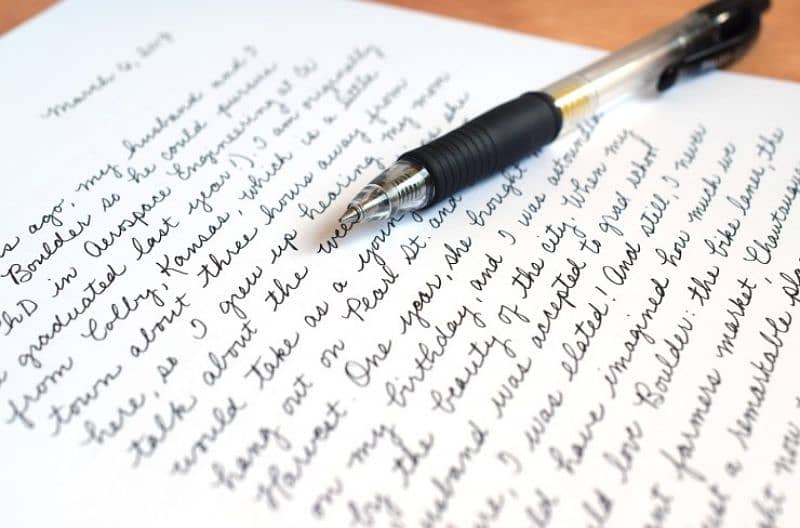 March 6, 2017
ago, my husband and I
Boulder so he could pursue
PhD in Aerospace Engineering at
graduated last year!) I am originally
from Colby, Kansas, which is a little
town about three hours away from
here, so I grew up hearing my mom
talk about the
would take as a young
hang out on Pearl St. and
Harvest. One year, she brought
on my birthday, and I was astounded
by the beauty of the city. When my
husband was accepted to grad school
I was elated! And still, I never
have imagined how much we
love Boulder: the bike lanes, the
farmers market, Chautauqua
a remarkable
now